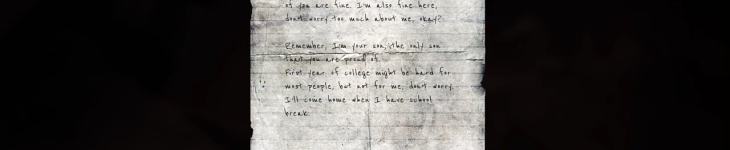 of you are fine. I'm also fine here,
don't worry too much about me, okay?
Remember, I'm your son, the only son
that you are proud of.
First year of college might be hard for
most people, but not for me, don't worry.
I'll come home when I have school
break.